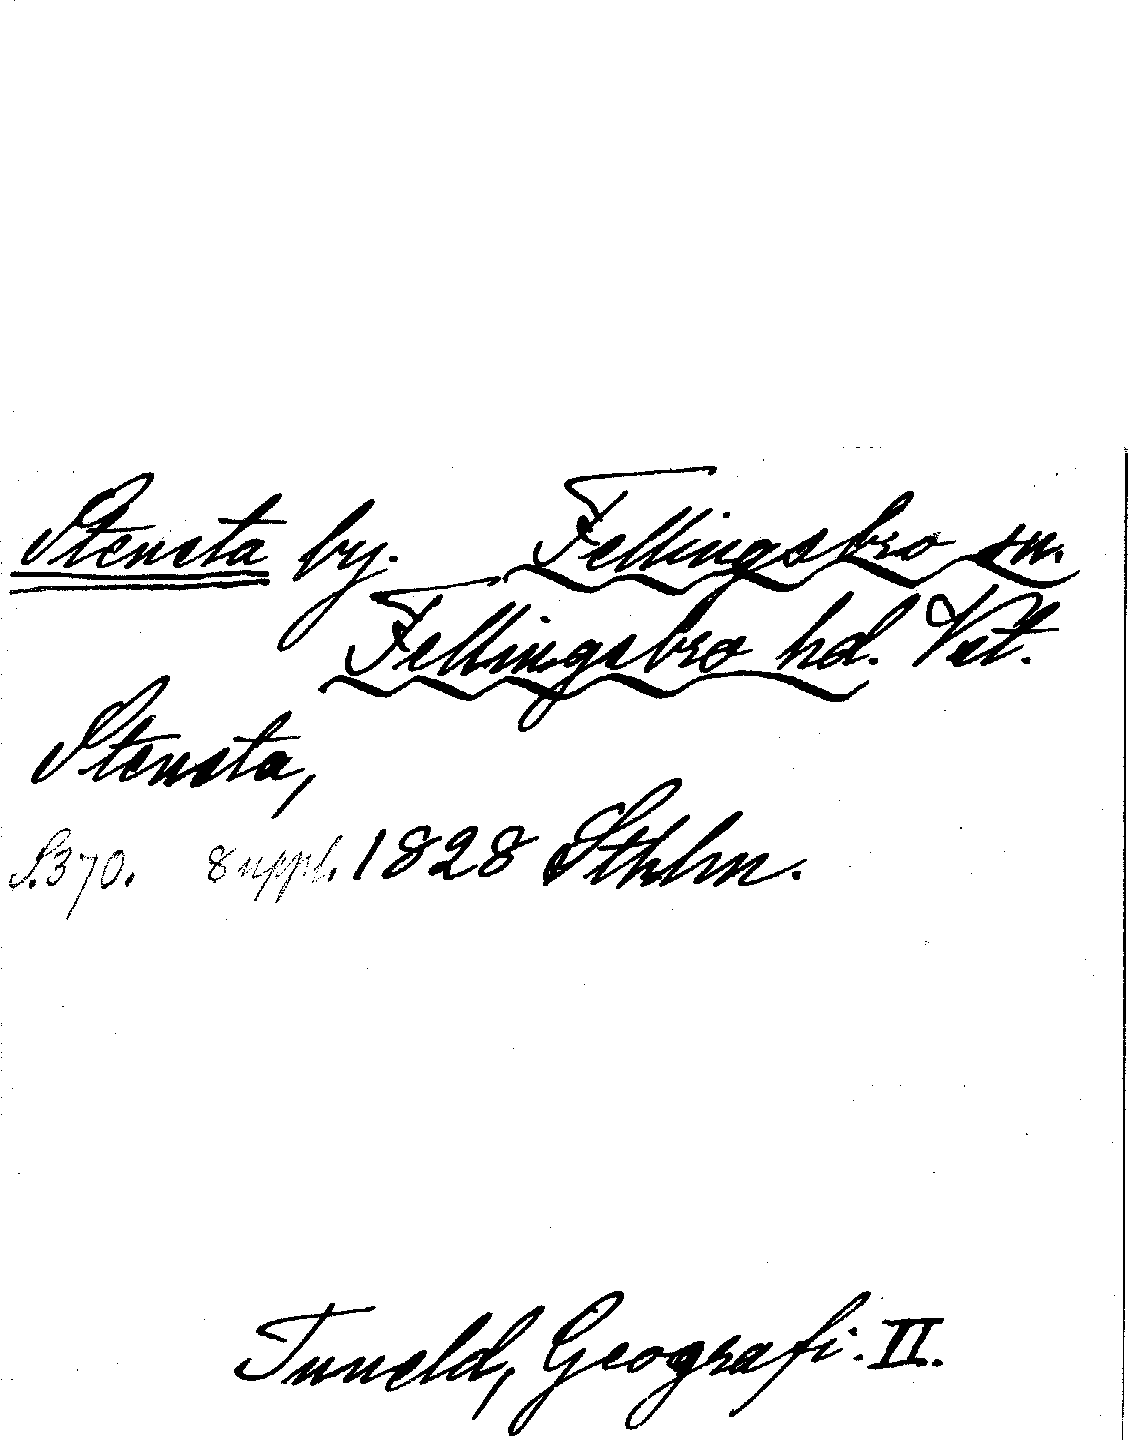 Stensta by. Fellingsbro sn.
Fellingsbro hd. Vst.
Stensta,
S.370. Suppl. 1828 Sthlm.
Tuneld, Geografi. II.